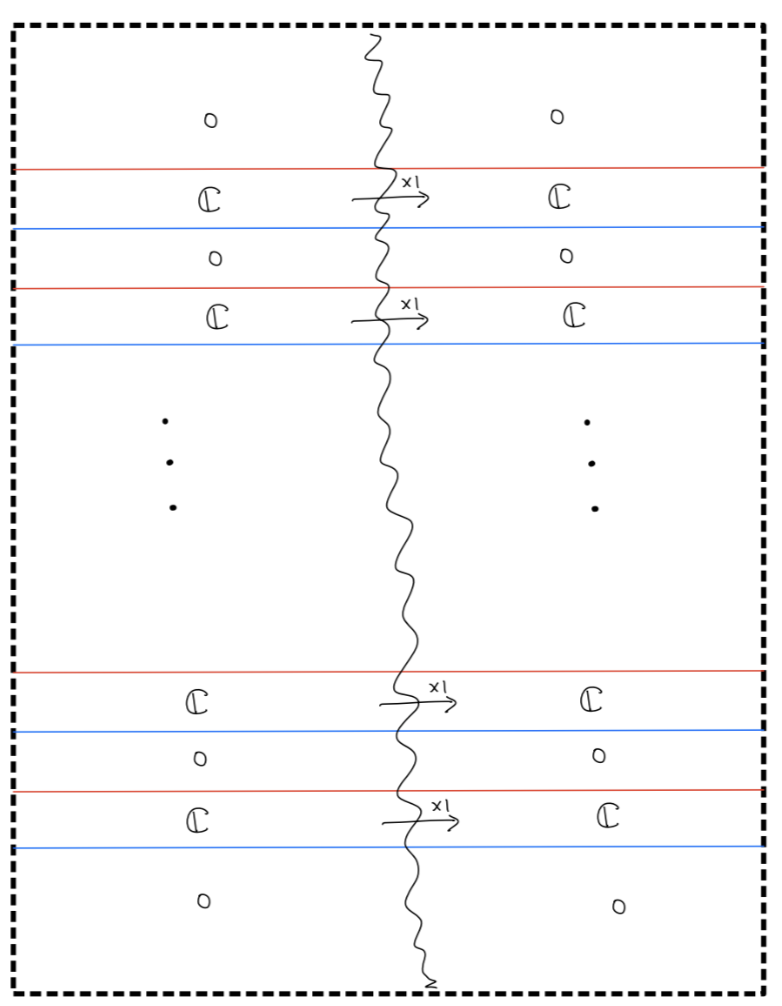 0 0
ℂ x1 ℂ
0 0
ℂ x1 ℂ
ℂ x1 ℂ
0 0
ℂ x1 ℂ
0 0